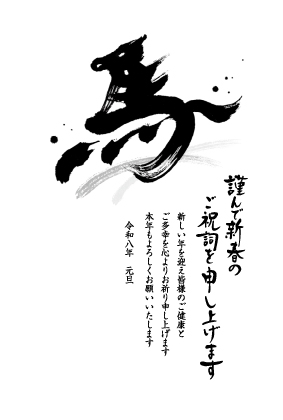 馬
謹んで新春の
ご祝詞を申し上げます
新しい年を迎え皆様のご健康と
ご多幸を心よりお祈り申し上げます
本年もよろしくお願いいたします
令和八年　元旦